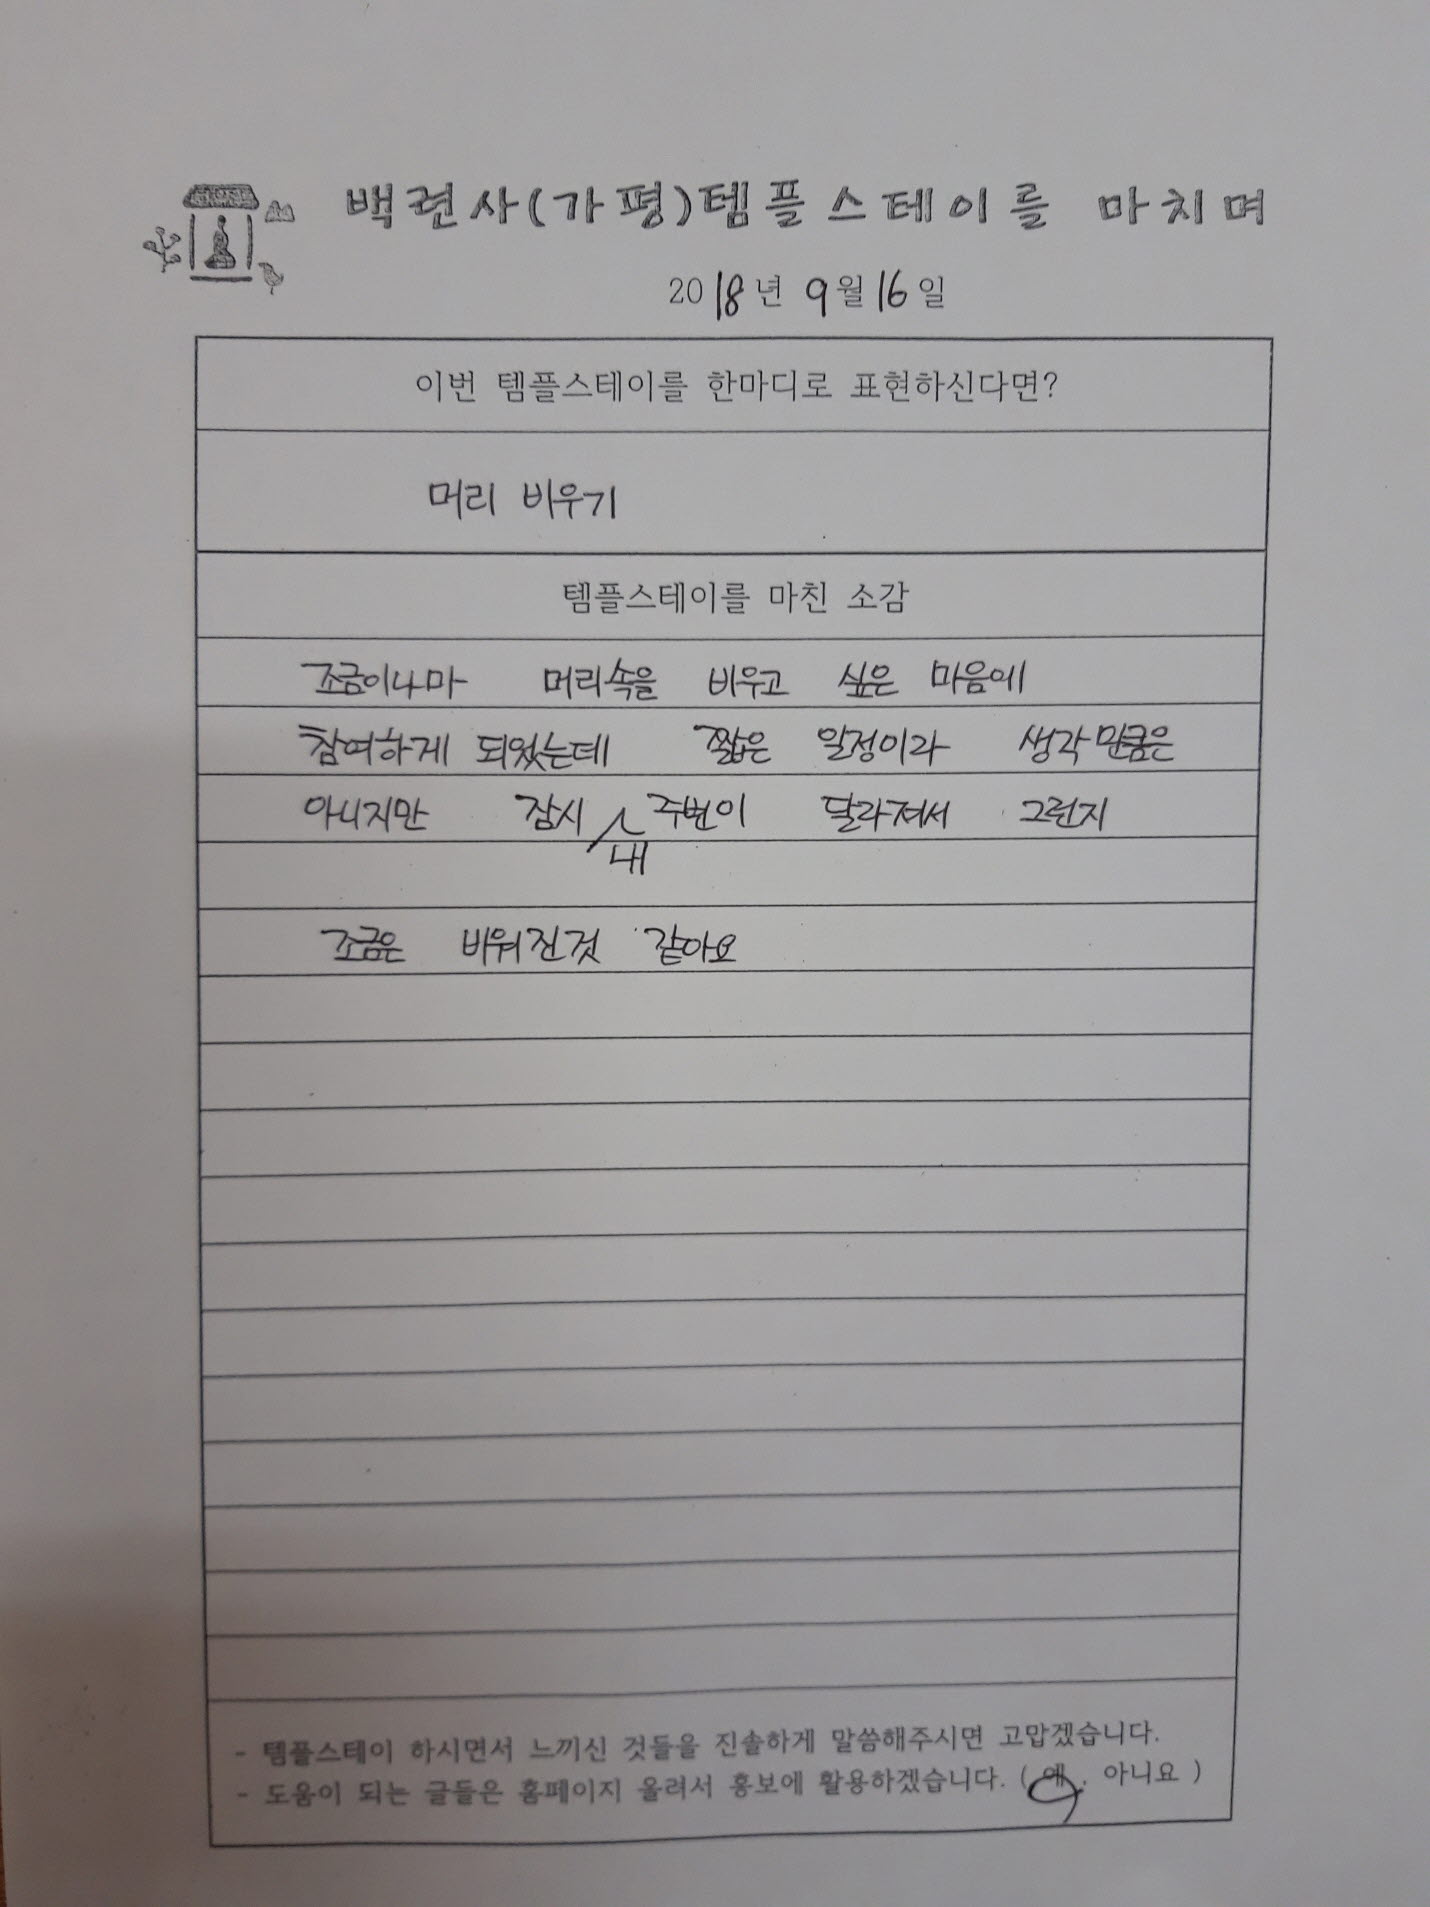 백련사(가평)템플스테이를 마치며
2018년 9월 16일
이번 템플스테이를 한마디로 표현하신다면?
머리 비우기
템플스테이를 마친 소감
조금이나마 머리속을 비우고 싶은 마음에
참여하게 되었는데 짧은 일정이라 생각만큼은
아니지만 잠시 내 주변이 달라져서 그런지
조금은 비워진것 같아요
- 템플스테이 하시면서 느끼신 것들을 진솔하게 말씀해주시면 고맙겠습니다.
- 도움이 되는 글들은 홈페이지 올려서 홍보에 활용하겠습니다. ( 예 . 아니요 )